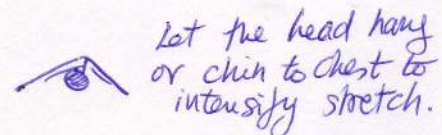 Let the head hang
or chin to Chest to
intensify stretch.